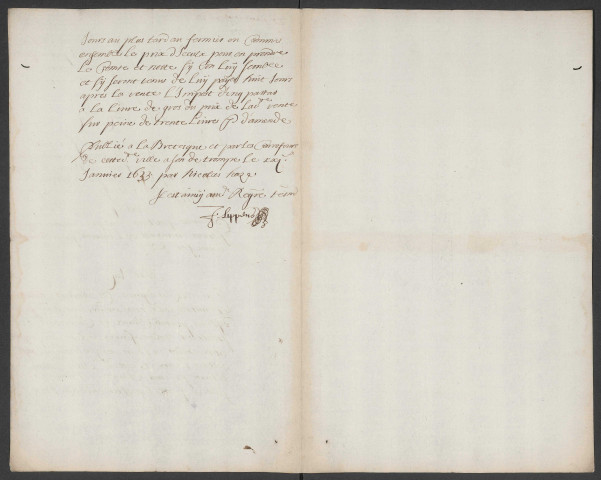 Jours au plus tard au fermier ou Commis
ensemble le prix d'iceux pour en prendre
le Compte et notte sy bon luy semble
et sy seront tenus de luy payer huit Jours
apres la vente L'Impot d'enq pattars
a la livre de gros du prix de lad.te vente
sur peine de trente Livres p. d'amende
Publié a la Bretecque et par les carrefours
de cette d.te ville a son de trompe le
Janvier 1633 par Nicolas